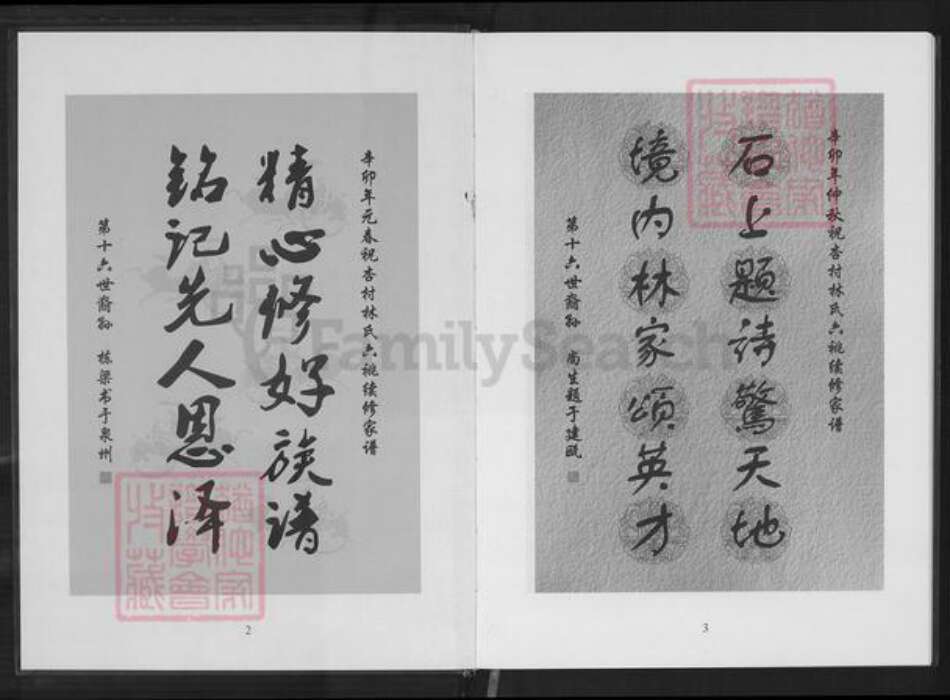 辛卯年元春祝杏村林氏六祧续修家谱
精心修好族谱
铭记先人恩泽
第十六世裔孙 栋梁书于泉州
2
辛卯年仲秋祝杏村林氏六祧续修家谱
石上題诗驚天地
境内林家頌英才
第十六世裔孙 尚生题于建瓯
3
FamilySearch